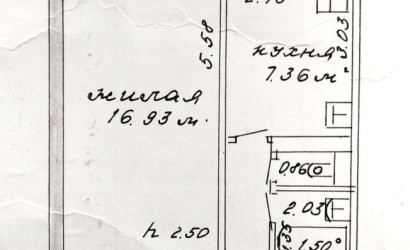 5.58
3.03
кухня
7.36 м²
жилая
16.93 м.
0.86
2.03
h 2.50
1.35
1.50